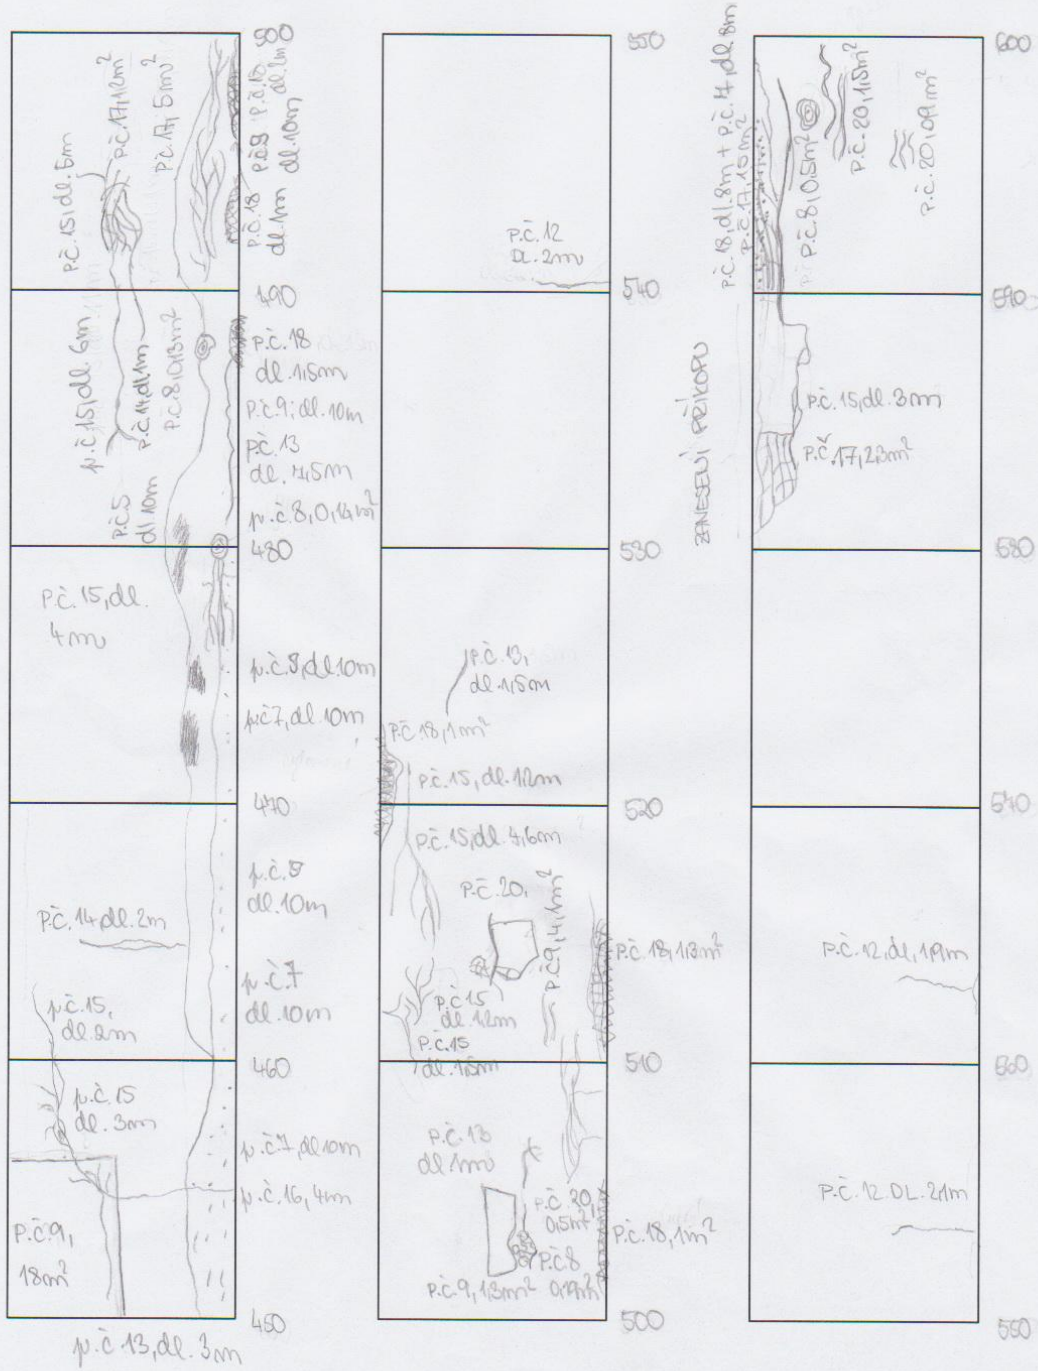 500
p.č. 15, dl. 5m
p.č. 17, 12m²
p.č. 17, 5m²
p.č. 18
dl. 1m
dl. 10m
490
p.č. 15, dl. 6m
p.č. 14, dl. 1m
p.č. 8, 0,13m²
p.č. 18
dl. 1,5m
p.č. 9, dl. 10m
p.č. 13
p.č. 8, 0,14m²
p.č. 5
dl 10m
480
p.č. 15, dl.
4m
p.č. 7, dl. 10m
470
dl. 10m
p.č. 14, dl. 2m
p.č. 7
dl. 10m
p.č. 15,
dl. 2m
460
p.č. 15
dl. 3m
p.č. 7, dl 10m
p.č. 16, 4m
p.č. 9,
18m²
450
p.č. 13, dl. 3m
550
p.č. 12
DL. 2m
540
530
p.č. 13,
dl. 1,5m
p.č. 18, 1m²
p.č. 15, dl. 12m
520
p.č. 15, dl. 4,6m
p.č. 20,
p.č. 9, 4,1m²
p.č. 18, 1,3m²
p.č. 15
dl. 1,2m
p.č. 15
dl. 1,5m
510
p.č. 13
dl 1m
p.č. 20,
0,5m²
p.č. 18, 1m²
p.č. 8
p.č. 9, 1,3m²
500
600
p.č. 18, dl. 8m + p.č. 4, dl. 8m
p.č. 17, 15m²
p.č. 8, 0,5m²
p.č. 20, 1,5m²
p.č. 20, 0,9m²
590
ZANESENÍ PŘÍKOPU
p.č. 15, dl. 3m
p.č. 17, 23m²
580
570
p.č. 12, dl, 1,9m
560
p.č. 12 DL. 2,1m
550